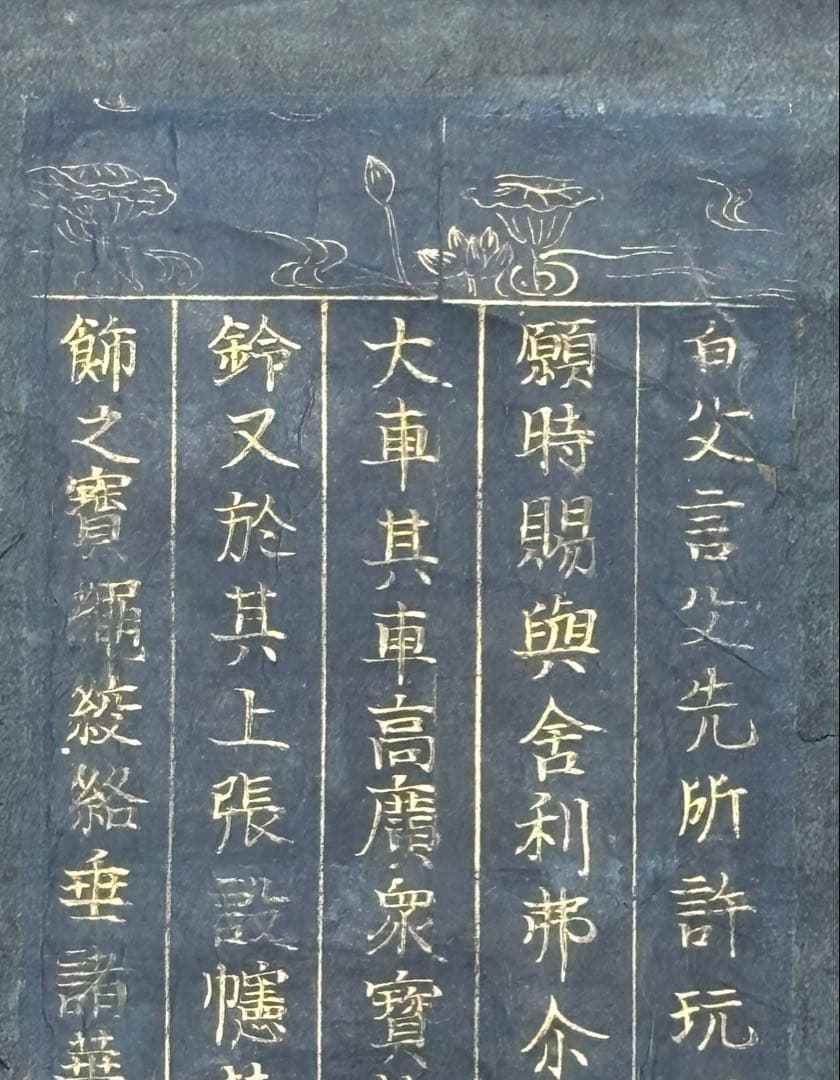 白父言父先所許玩
願時賜與舍利弗尒
大車其車高廣衆寶
鈴又於其上張設幰
飾之寶繩絞絡垂諸華